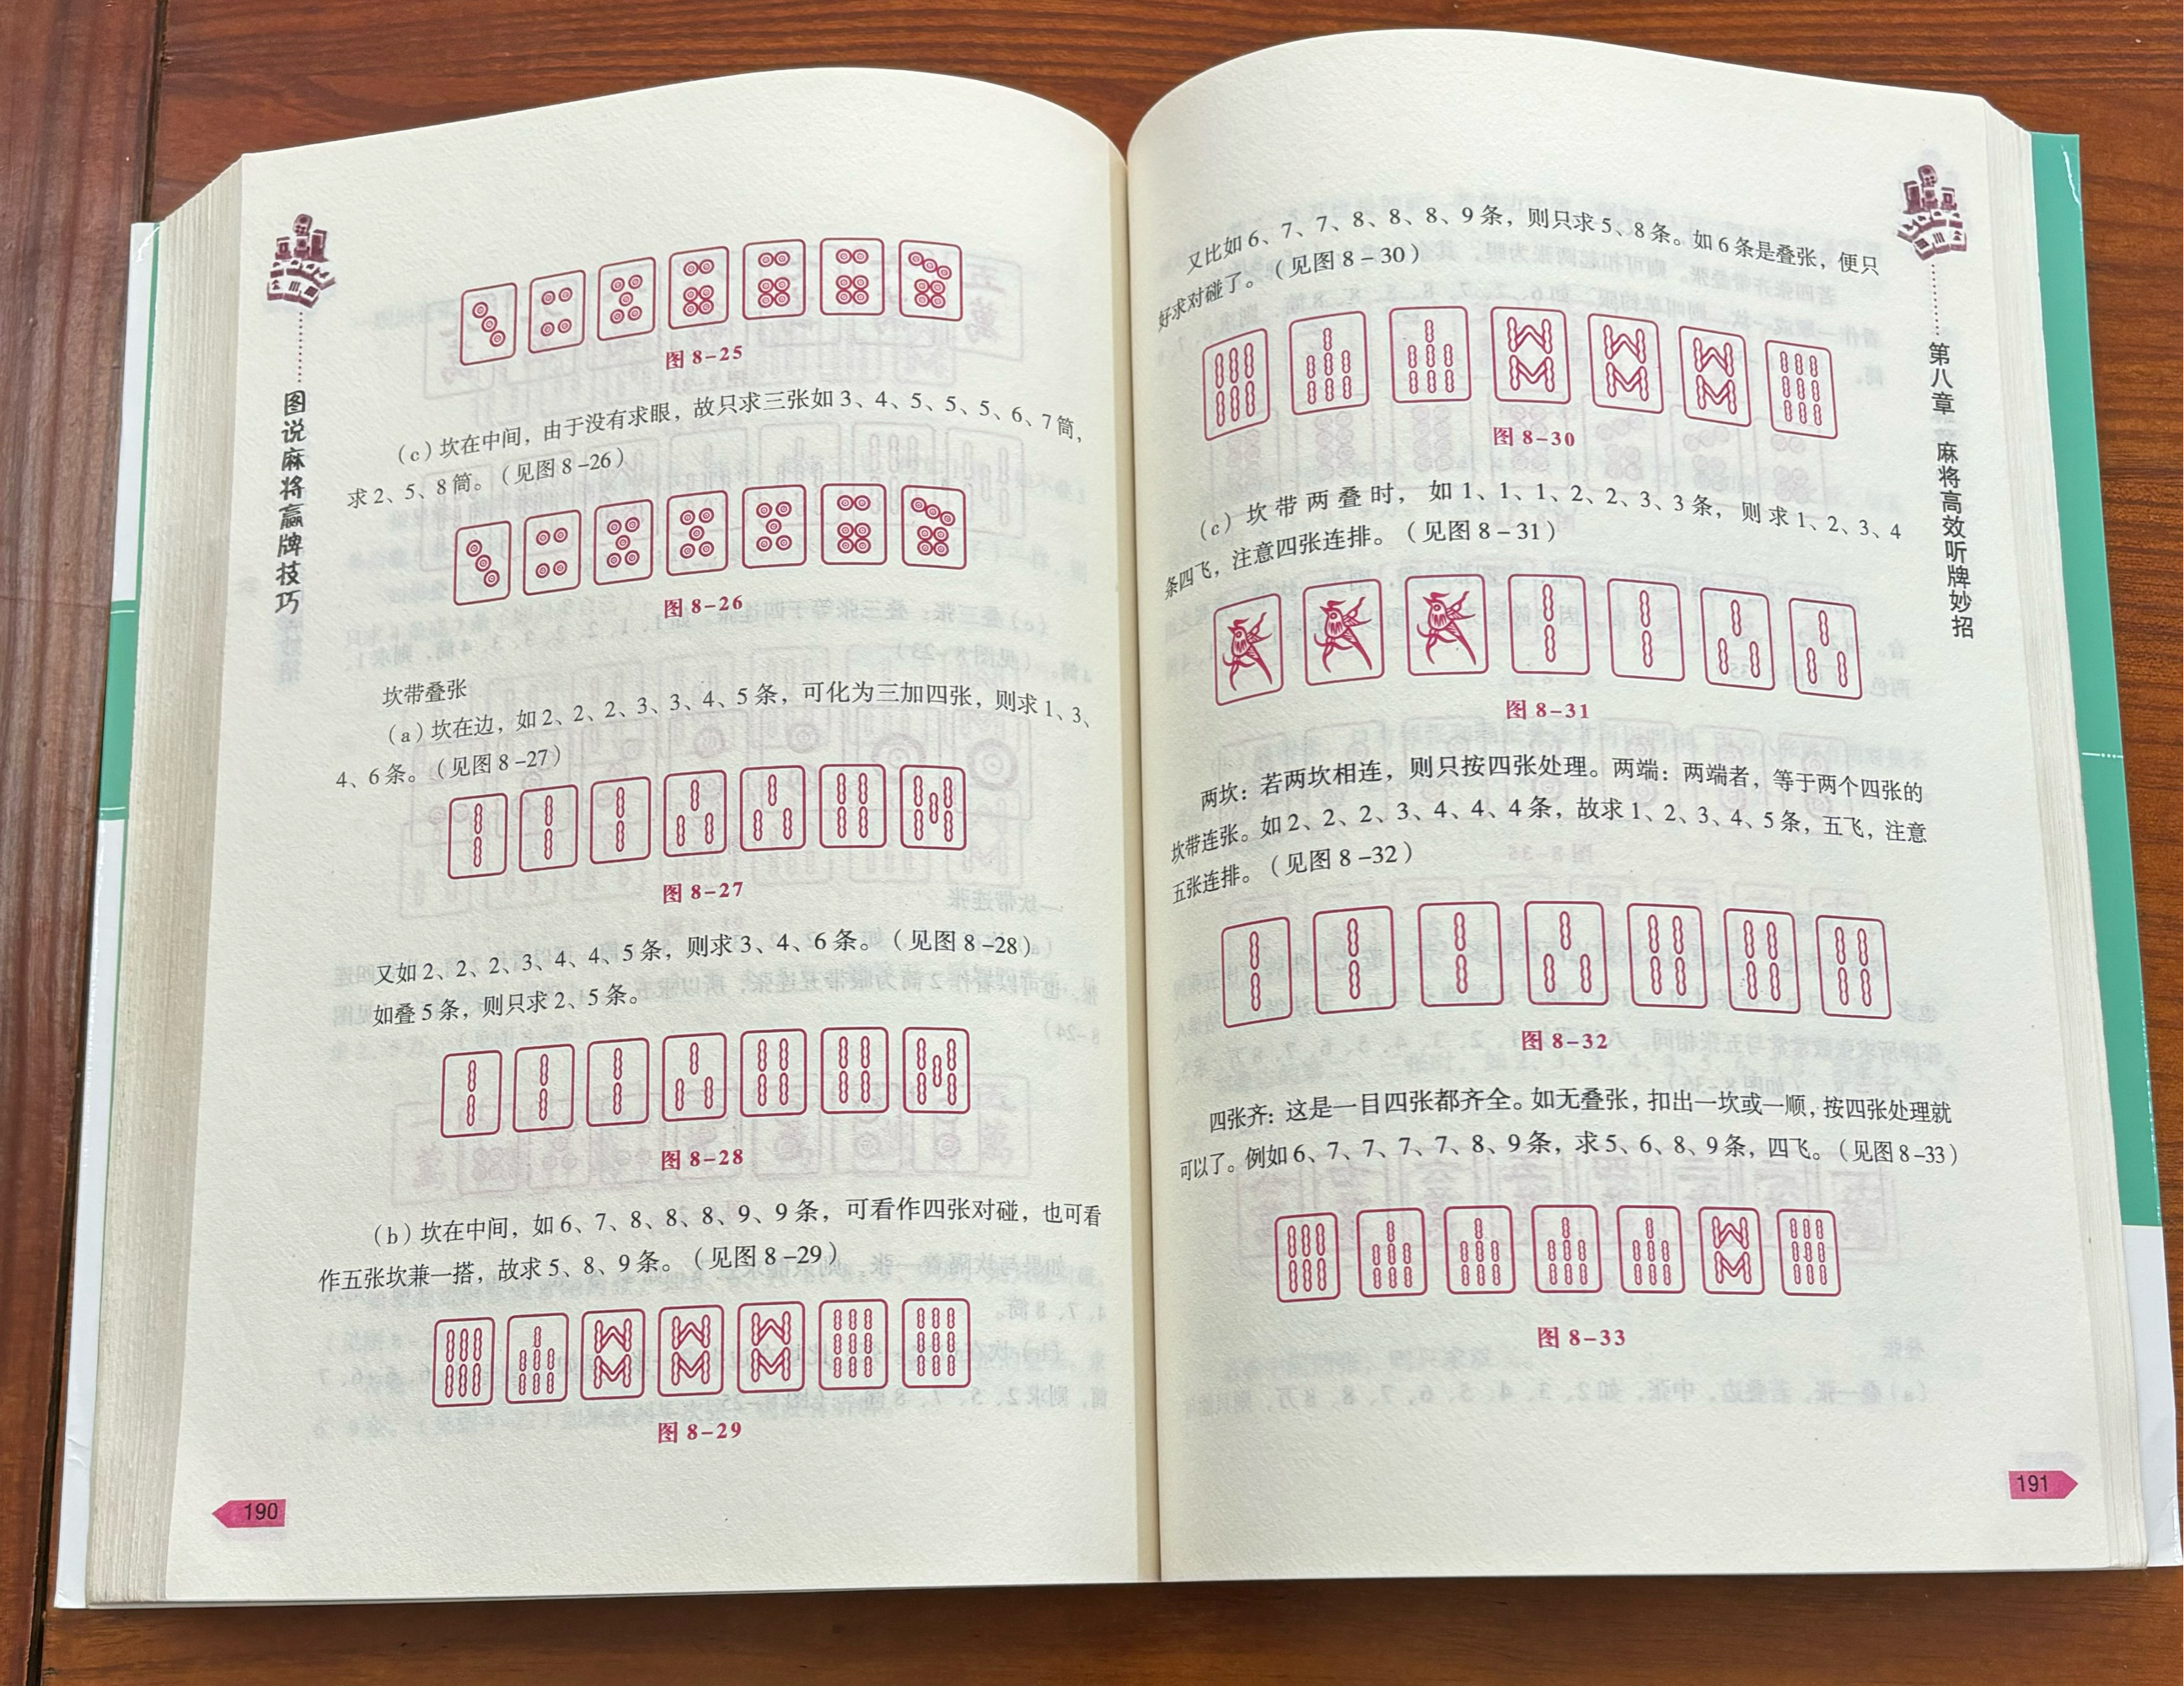 图说麻将赢牌技巧
图 8-25
(c)坎在中间，由于没有求眼，故只求三张如 3、4、5、5、5、6、7 筒，
求 2、5、8 筒。（见图 8-26）
图 8-26
坎带叠张
(a)坎在边，如 2、2、2、3、3、4、5 条，可化为三加四张，则求 1、3、
4、6 条。（见图 8-27）
图 8-27
又如 2、2、2、3、4、4、5 条，则求 3、4、6 条。（见图 8-28）
如叠 5 条，则只求 2、5 条。
图 8-28
(b)坎在中间，如 6、7、8、8、8、9、9 条，可看作四张对碰，也可看
作五张坎兼一搭，故求 5、8、9 条。（见图 8-29）
图 8-29
190
又比如 6、7、7、8、8、8、9 条，则只求 5、8 条。如 6 条是叠张，便只
好求对碰了。（见图 8-30）
图 8-30
(c)坎带两叠时，如 1、1、1、2、2、3、3 条，则求 1、2、3、4
条四飞，注意四张连排。（见图 8-31）
图 8-31
两坎：若两坎相连，则只按四张处理。两端：两端者，等于两个四张的
坎带连张。如 2、2、2、3、4、4、4 条，故求 1、2、3、4、5 条，五飞，注意
五张连排。（见图 8-32）
图 8-32
四张齐：这是一目四张都齐全。如无叠张，扣出一坎或一顺，按四张处理就
可以了。例如 6、7、7、7、7、8、9 条，求 5、6、8、9 条，四飞。（见图 8-33）
图 8-33
第八章 麻将高效听牌妙招
191